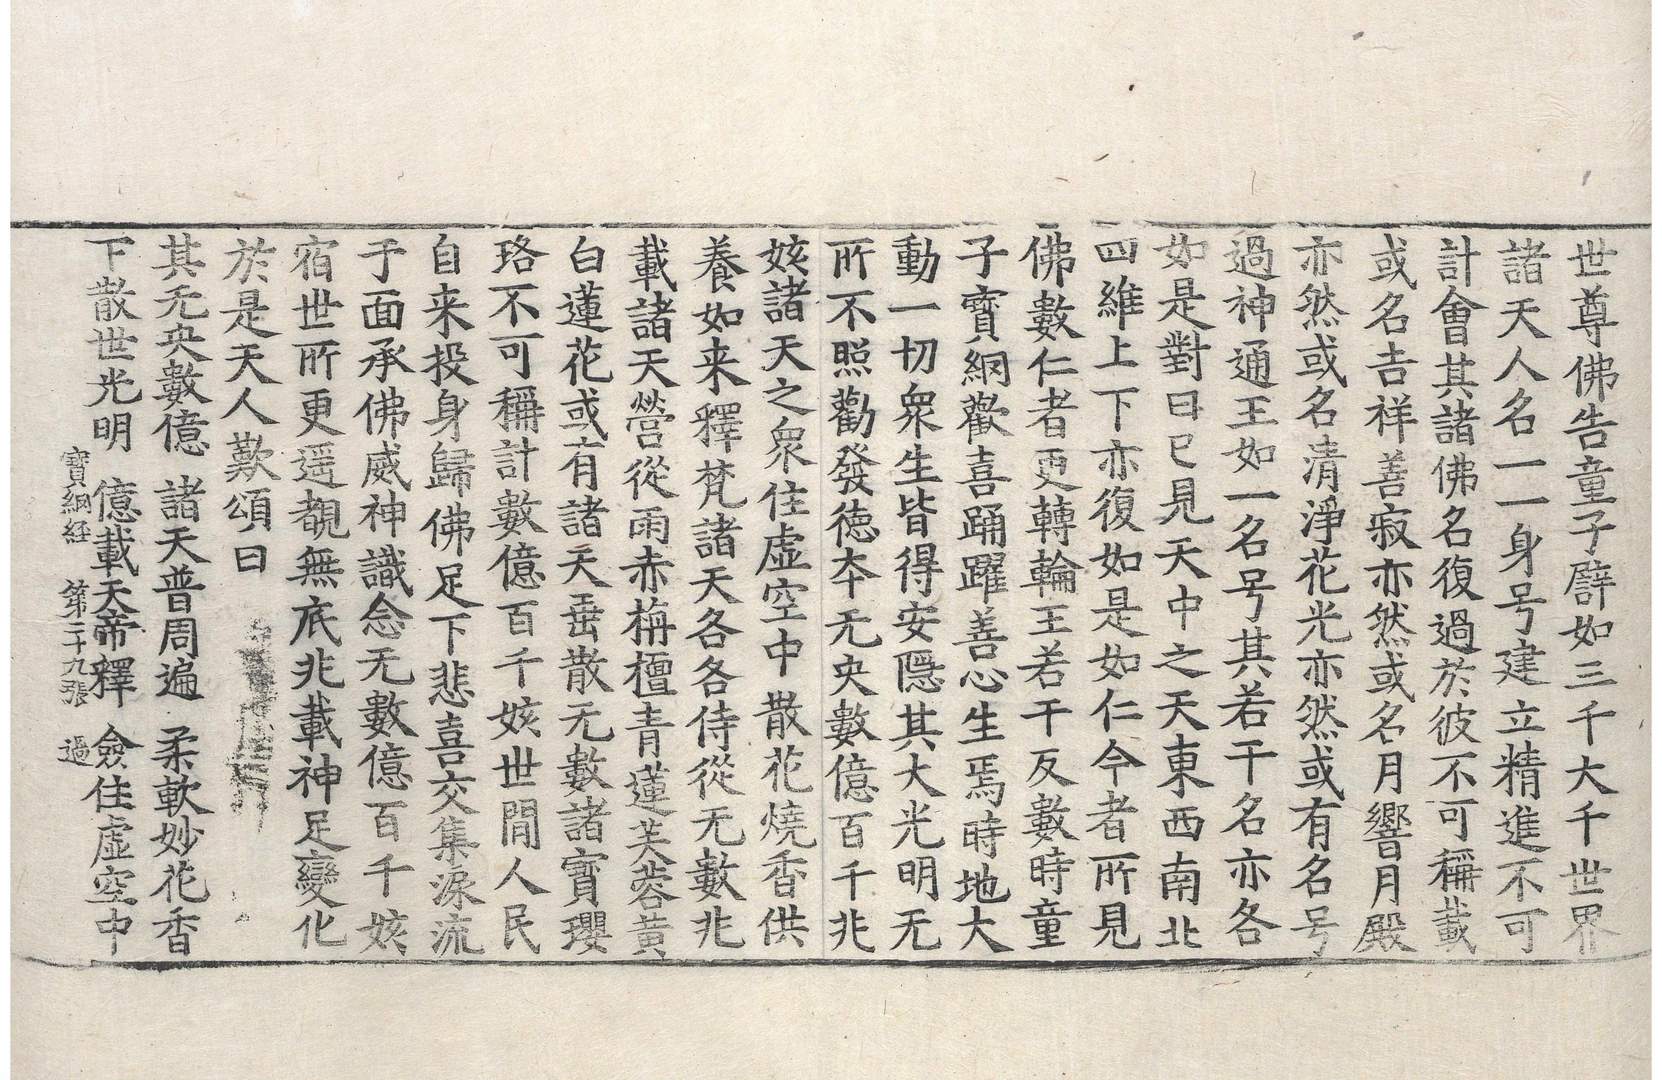 世尊佛告童子譬如三千大千世界
諸天人名一一身号建立精進不可
計會其諸佛名復過於彼不可稱載
或名吉祥善寂亦然或名月響月殿
亦然或名清淨花光亦然或有名号
過神通王如一名号其若干名亦各
如是對曰已見天中之天東西南北
四維上下亦復如是如仁今者所見
佛數仁者更轉輪王若干反數時童
子寳網歡喜踊躍善心生焉時地大
動一切衆生皆得安隱其大光明无
所不照勸發德夲无央數億百千兆
姟諸天之衆住虚空中散花燒香供
養如来釋梵諸天各各侍從无數兆
載諸天營從雨赤栴檀青蓮芙蓉黄
白蓮花或有諸天垂散无數諸寳瓔
珞不可稱計數億百千姟世間人民
自来投身歸佛足下悲喜交集淚流
于面承佛威神識念无數億百千姟
宿世所更遥覩無底兆載神足變化
於是天人歎頌曰
其无央數億 諸天普周遍 柔軟妙花香
下散世光明 億載天帝釋 僉住虚空中
寳網経 第二十九張 過